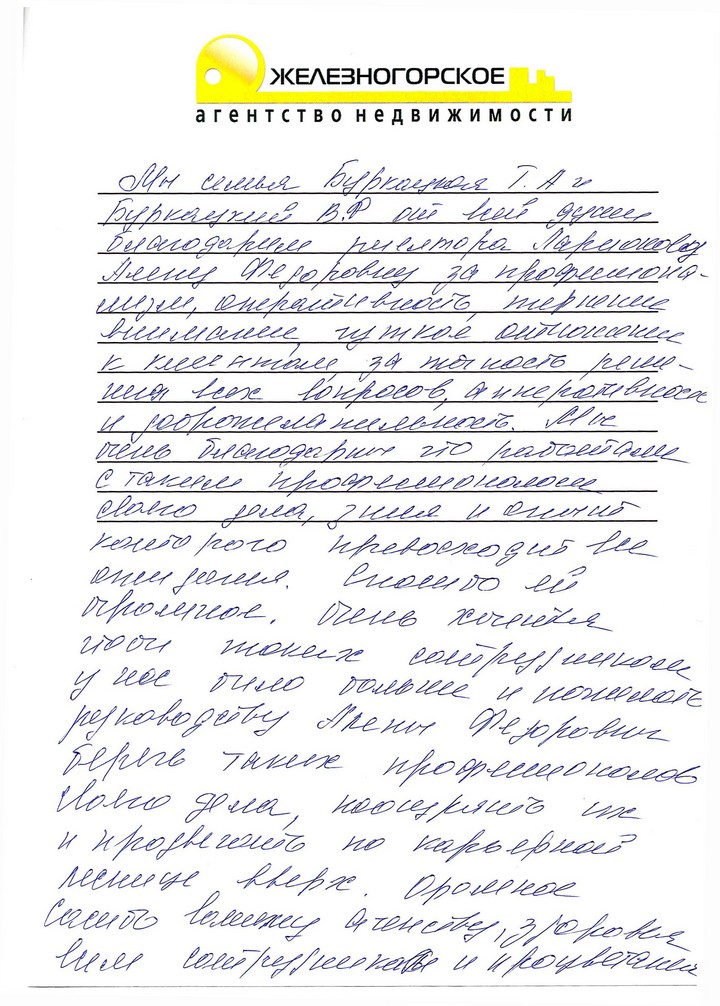 ЖЕЛЕЗНОГОРСКОЕ
агентство недвижимости
Мы семья Буркацкая Т.А и
Буркацкий В.Р от всей души
благодарим риелтора Ларионову
Алену Федоровну за профессиона-
лизм, оперативность, терпение
внимание, чуткое отношение
к клиентам, за тькость реше-
ния всех вопросов, аперативность
и доброжелательность. Мы
очень благодарны что работаем
с таким профессионалом
своего дела, зния и опыт
которого превосходит все
ожидания. Спасибо ей
огромное. Очень хочется
чтоби таких сотрудников
у нас било больше и пожелать
руководству Алены Федоровны
беречь таких профессионалов
своего дела, поощрять их
и продвигать по карьерной
леснице вверх. Оромное
сасибо вашему агенству, здоровья
всем сотрудникам и процветания